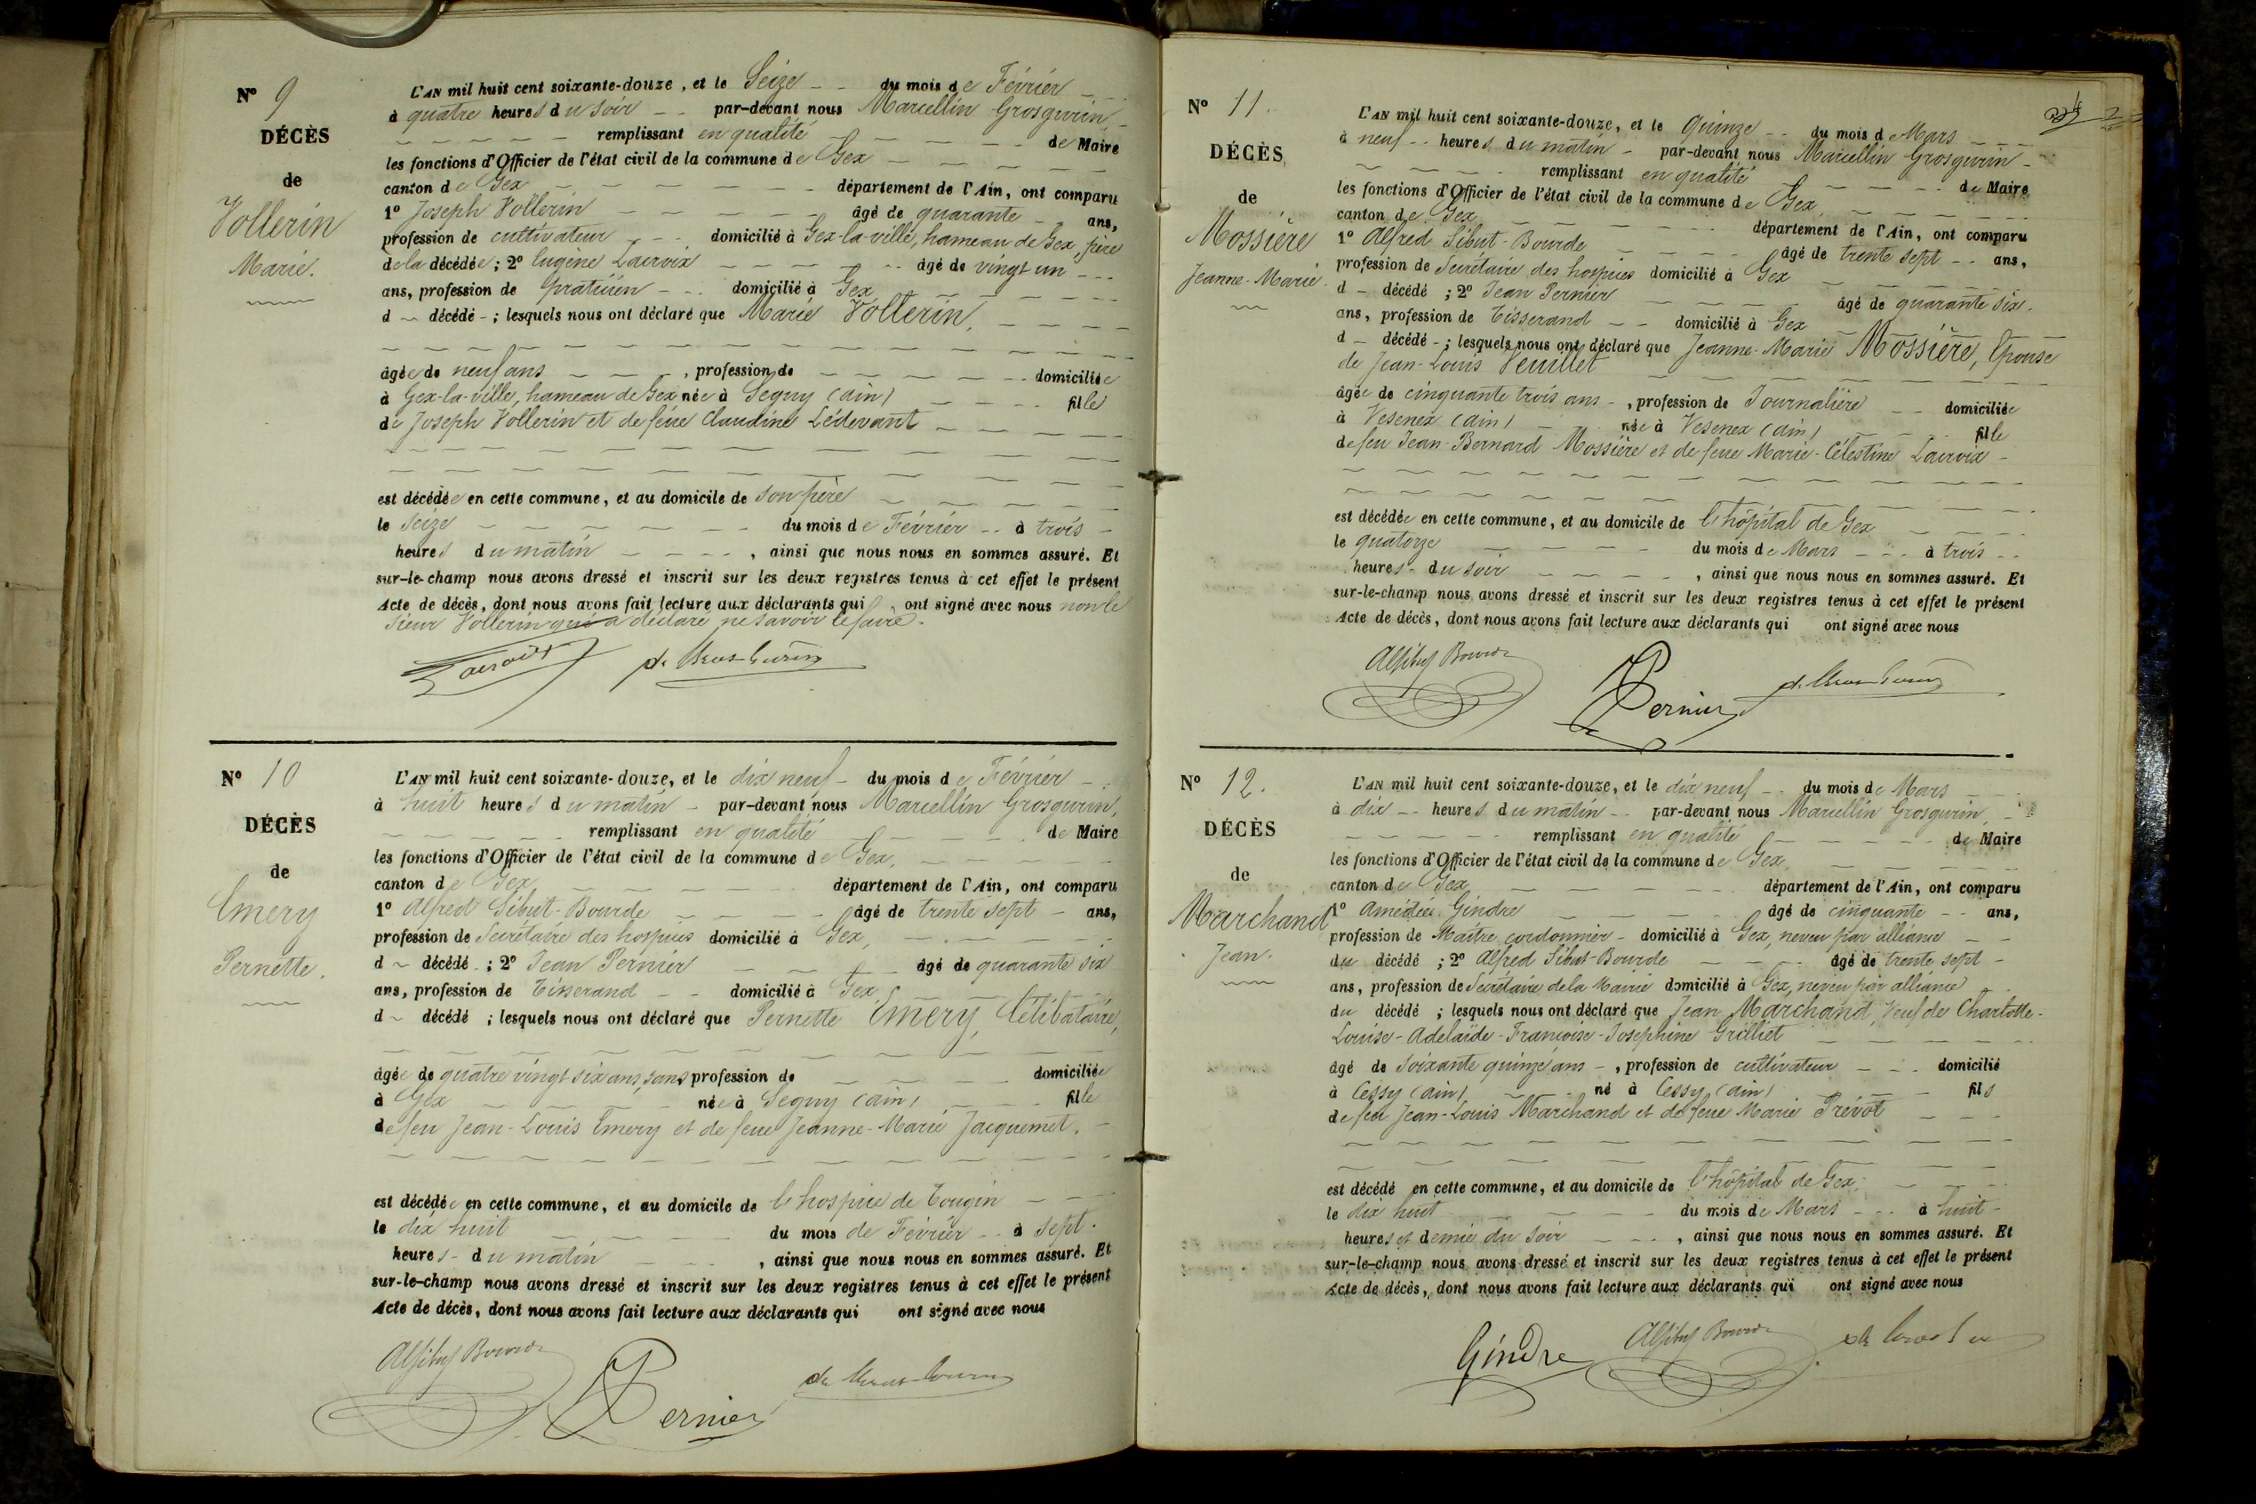 N° 9
DÉCÈS
de
Vollerin
Marie.
L'AN mil huit cent soixante-douze, et le Seize du mois de Février
à quatre heures du soir par-devant nous Marcellin Grosgurin,
remplissant en qualité de Maire
les fonctions d'Officier de l'état civil de la commune de Gex
canton de Gex département de l'Ain, ont comparu
1° Joseph Vollerin âgé de quarante ans,
profession de cultivateur domicilié à Gex-la-ville, hameau de Gex, père
de la décédée ; 2° Eugène Lacroix âgé de vingt un
ans, profession de praticien domicilié à Gex
d décédé ; lesquels nous ont déclaré que Marie Vollerin,
âgée de neuf ans , profession de domiciliée
à Gex-la-ville, hameau de Gex née à Segny (ain) fille
de Joseph Vollerin et de feue Claudine Lédevant
est décédée en cette commune, et au domicile de son père
le seize du mois de Février à trois
heures du matin , ainsi que nous nous en sommes assuré. Et
sur-le-champ nous avons dressé et inscrit sur les deux registres tenus à cet effet le présent
Acte de décès, dont nous avons fait lecture aux déclarants qui ont signé avec nous non le
Sieur Vollerin qui a déclaré ne savoir le faire.
Lacroix
N° 10
DÉCÈS
de
Emery
Pernette.
L'AN mil huit cent soixante-douze, et le dix neuf du mois de Février
à huit heures du matin par-devant nous Marcellin Grosgurin,
remplissant en qualité de Maire
les fonctions d'Officier de l'état civil de la commune de Gex,
canton de Gex département de l'Ain, ont comparu
1° Alfred Sibut-Bourde âgé de trente sept ans,
profession de Secrétaire des hospices domicilié à Gex,
d décédé ; 2° Jean Pernier âgé de quarante six
ans, profession de Tisserand domicilié à Gex
d décédé ; lesquels nous ont déclaré que Pernette Emery, Célibataire,
âgée de quatre vingt six ans, sans profession de domiciliée
à Gex née à Segny (ain) fille
de feu Jean-Louis Emery et de feue Jeanne-Marie Jacquemet.
est décédée en cette commune, et au domicile de l'hospice de Tougin
le dix huit du mois de Février à sept
heures du matin , ainsi que nous nous en sommes assuré. Et
sur-le-champ nous avons dressé et inscrit sur les deux registres tenus à cet effet le présent
Acte de décès, dont nous avons fait lecture aux déclarants qui ont signé avec nous
Alf Sibut Bourde
Pernier
N° 11.
DÉCÈS
de
Mossière
Jeanne-Marie.
L'AN mil huit cent soixante-douze, et le Quinze du mois de Mars
à neuf heures du matin par-devant nous Marcellin Grosgurin
remplissant en qualité de Maire
les fonctions d'Officier de l'état civil de la commune de Gex,
canton de Gex département de l'Ain, ont comparu
1° Alfred Sibut-Bourde âgé de trente sept ans,
profession de Secrétaire des hospices domicilié à Gex
d décédé ; 2° Jean Pernier âgé de quarante six.
ans, profession de Tisserand domicilié à Gex
d décédé ; lesquels nous ont déclaré que Jeanne-Marie Mossière, Epouse
de Jean-Louis Veuillet
âgée de cinquante trois ans , profession de Journalière domiciliée
à Vesenex (ain) née à Vesenex (ain) fille
de feu Jean-Bernard Mossière et de feue Marie-Célestine Lacroix
est décédée en cette commune, et au domicile de l'hôpital de Gex
le quatorze du mois de Mars à trois
heures du soir , ainsi que nous nous en sommes assuré. Et
sur-le-champ nous avons dressé et inscrit sur les deux registres tenus à cet effet le présent
Acte de décès, dont nous avons fait lecture aux déclarants qui ont signé avec nous
Alf Sibut Bourde
Pernier
N° 12.
DÉCÈS
de
Marchand
Jean.
L'AN mil huit cent soixante-douze, et le dix neuf du mois de Mars
à dix heures du matin par-devant nous Marcellin Grosgurin,
remplissant en qualité de Maire
les fonctions d'Officier de l'état civil de la commune de Gex,
canton de Gex département de l'Ain, ont comparu
1° Amédée Gindre âgé de cinquante ans,
profession de Maître cordonnier domicilié à Gex, neveu par alliance
du décédé ; 2° Alfred Sibut-Bourde âgé de trente sept
ans, profession de Secrétaire de la Mairie domicilié à Gex, neveu par alliance
du décédé ; lesquels nous ont déclaré que Jean Marchand, Veuf de Charlotte-
Louise-Adelaïde-Françoise-Josephine Grilliet
âgé de soixante quinze ans , profession de cultivateur domicilié
à Cessy (ain) né à Cessy (ain) fils
de feu Jean-Louis Marchand et de feue Marie Prévot
est décédé en cette commune, et au domicile de l'hôpital de Gex
le dix huit du mois de Mars à huit
heures et demie du soir , ainsi que nous nous en sommes assuré. Et
sur-le-champ nous avons dressé et inscrit sur les deux registres tenus à cet effet le présent
Acte de décès, dont nous avons fait lecture aux déclarants qui ont signé avec nous
Gindre
Alf Sibut Bourde